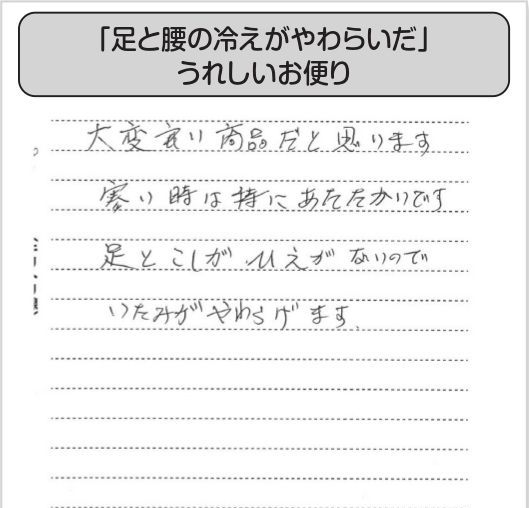 「足と腰の冷えがやわらいだ」
うれしいお便り
大変良い商品だと思います
寒い時は特にあたたかいです
足とこしがひえがないので
いたみがやわらげます.